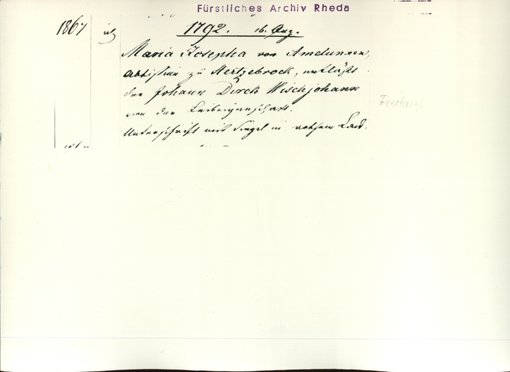 Fürstliches Archiv Rheda
1867
1792. 16. Aug.
Maria Josepha von Amelunxen,
Äbtissin zu Hertzebrock, entläßt
den Johann Dirck Wischjohann
von der Leibeigenschaft.
Unterschrift mit Siegel in rothem Lack.